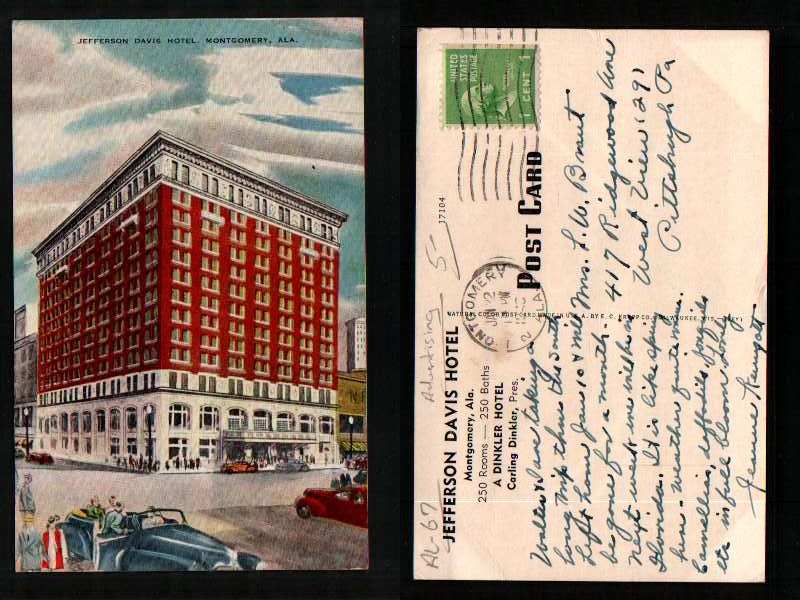 JEFFERSON DAVIS HOTEL, MONTGOMERY, ALA.
UNITED STATES POSTAGE
1 CENT 1
POST CARD
17104
5-
Advertising
AL-67
MONTGOMERY
ALA.
JEFFERSON DAVIS HOTEL
Montgomery, Ala.
250 Rooms — 250 Baths
A DINKLER HOTEL
Carling Dinkler, Pres.
NATURAL COLOR POST CARD MADE IN U.S.A. BY E. C. KROPP CO., MILWAUKEE, WIS.
Mrs. L. W.
417 Ridgewood Ave
West View (29)
Pittsburgh Pa
Walter & I are taking a
long trip thru the South
Left home Jan 10 & will
be gone for a month.
Next week we will be in
Florida. It is like spring
here - weather quite warm.
Camellias, daffodils, jonquils
etc in full bloom.
Jeanne